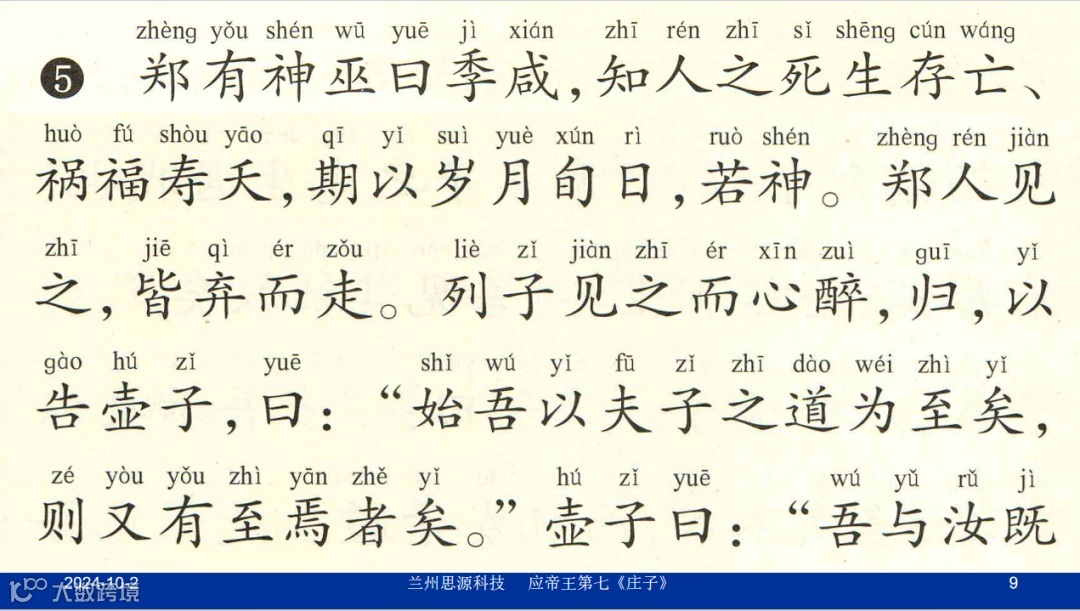 zhèng yǒu shén wū yuē jì xián zhī rén zhī sǐ shēng cún wáng
5 郑有神巫曰季咸,知人之死生存亡、
huò fú shòu yāo qī yǐ suì yuè xún rì ruò shén zhèng rén jiàn
祸福寿夭,期以岁月旬日,若神。郑人见
zhī jiē qì ér zǒu liè zǐ jiàn zhī ér xīn zuì guī yǐ
之,皆弃而走。列子见之而心醉,归,以
gào hú zǐ yuē shǐ wú yǐ fū zǐ zhī dào wéi zhì yǐ
告壶子,曰:“始吾以夫子之道为至矣,
zé yòu yǒu zhì yān zhě yǐ hú zǐ yuē wú yǔ rǔ jì
则又有至焉者矣。”壶子曰:“吾与汝既
2024-10-2 兰州思源科技 应帝王第七《庄子》 9
大数跨境